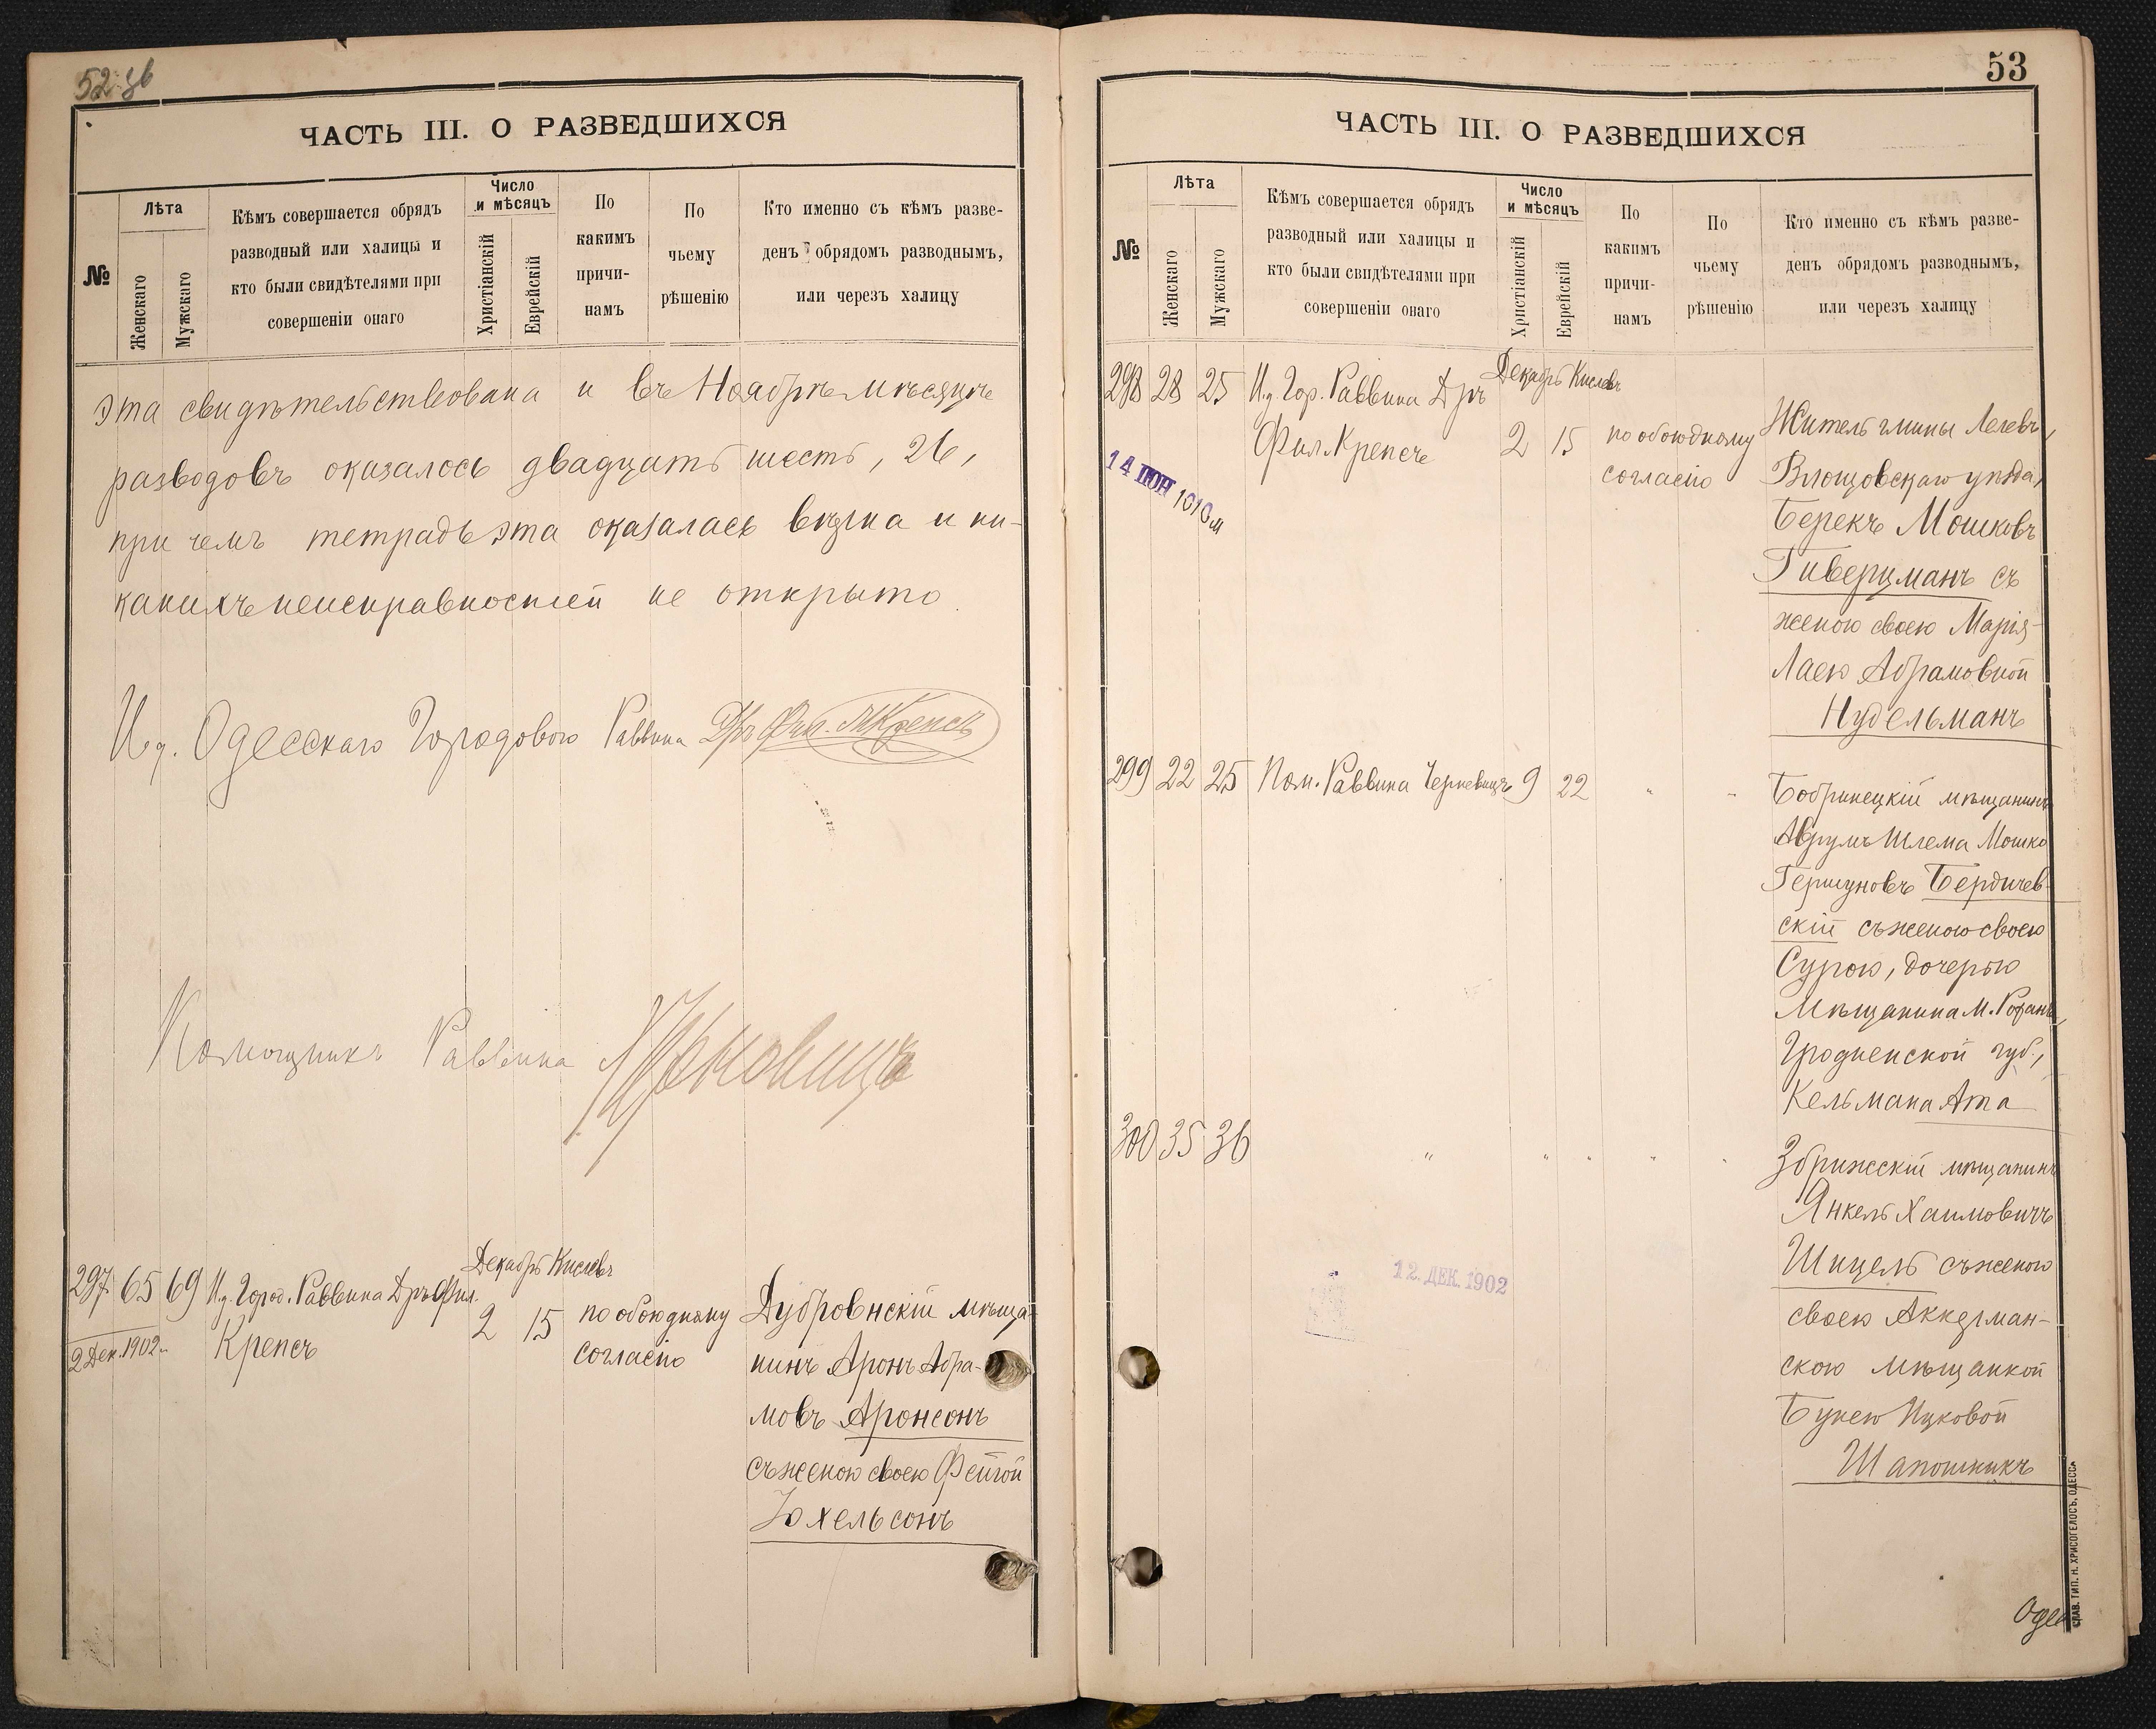 52 зв
ЧАСТЬ III. О РАЗВЕДШИХСЯ
№
Лѣта
Женскаго
Мужскаго
Кѣмъ совершается обрядъ
разводный или халицы и
кто были свидѣтелями при
совершеніи онаго
Число
и мѣсяцъ
Христіанскій
Еврейскій
По
какимъ
причи-
намъ
По
чьему
рѣшенію
Кто именно съ кѣмъ разве-
денъ обрядомъ разводнымъ,
или черезъ халицу
эта свидѣтельствована и въ Ноябрѣ мѣсяцѣ
разводовъ оказалось двадцать шесть, 26,
при чемъ тетрадь эта оказалась вѣрна и ни-
какихъ неисправностей не открыто.
И.д. Одесскаго Городового Раввина Дръ Фил. Крепсъ
Помощникъ Раввина
297 65 69 И.д. Город. Раввина Дръ Фил.
Крепсъ
2 Дек. 1902 г.
Декабрь Кислевъ
2 15
по обоюдному
согласію
Дубровнскій мѣща-
нинъ Аронъ Абра-
мовъ Аронсонъ
съ женою своею Фейгой
Іохельсонъ
53
ЧАСТЬ III. О РАЗВЕДШИХСЯ
№
Лѣта
Женскаго
Мужскаго
Кѣмъ совершается обрядъ
разводный или халицы и
кто были свидѣтелями при
совершеніи онаго
Число
и мѣсяцъ
Христіанскій
Еврейскій
По
какимъ
причи-
намъ
По
чьему
рѣшенію
Кто именно съ кѣмъ разве-
денъ обрядомъ разводнымъ,
или черезъ халицу
298 28 25 И.д. Гор. Раввина Дръ
Фил. Крепсъ
14 ІЮН 1910
Декабрь Кислевъ
2 15
по обоюдному
согласію
Житель гмины Лелевъ,
Влощовскаго уѣзда,
Берекъ Мошковъ
Гиверцманъ съ
женою своею Марія-
Лаею Абрамовной
Нудельманъ
299 22 25 Пом. Раввина 9 22 " "
Бобринецкій мѣщанинъ
Аврумъ Шлема Мошко
Гершуновъ Бердичев-
скій съ женою своею
Сурою, дочерью
Мѣщанина м.
Гродненской губ.,
Кельмана Ата
300 35 36 " " " " "
Збрижскій мѣщанинъ
Янкель Хаимовичъ
Шицель съ женою
своею Аккерман-
скою мѣщанкой
Бунею Ицковой
Шапошникъ
12. ДЕК. 1902
Одес
СЛАВ. ТИП. Н. ХРИСОГЕЛОСЪ, ОДЕССА